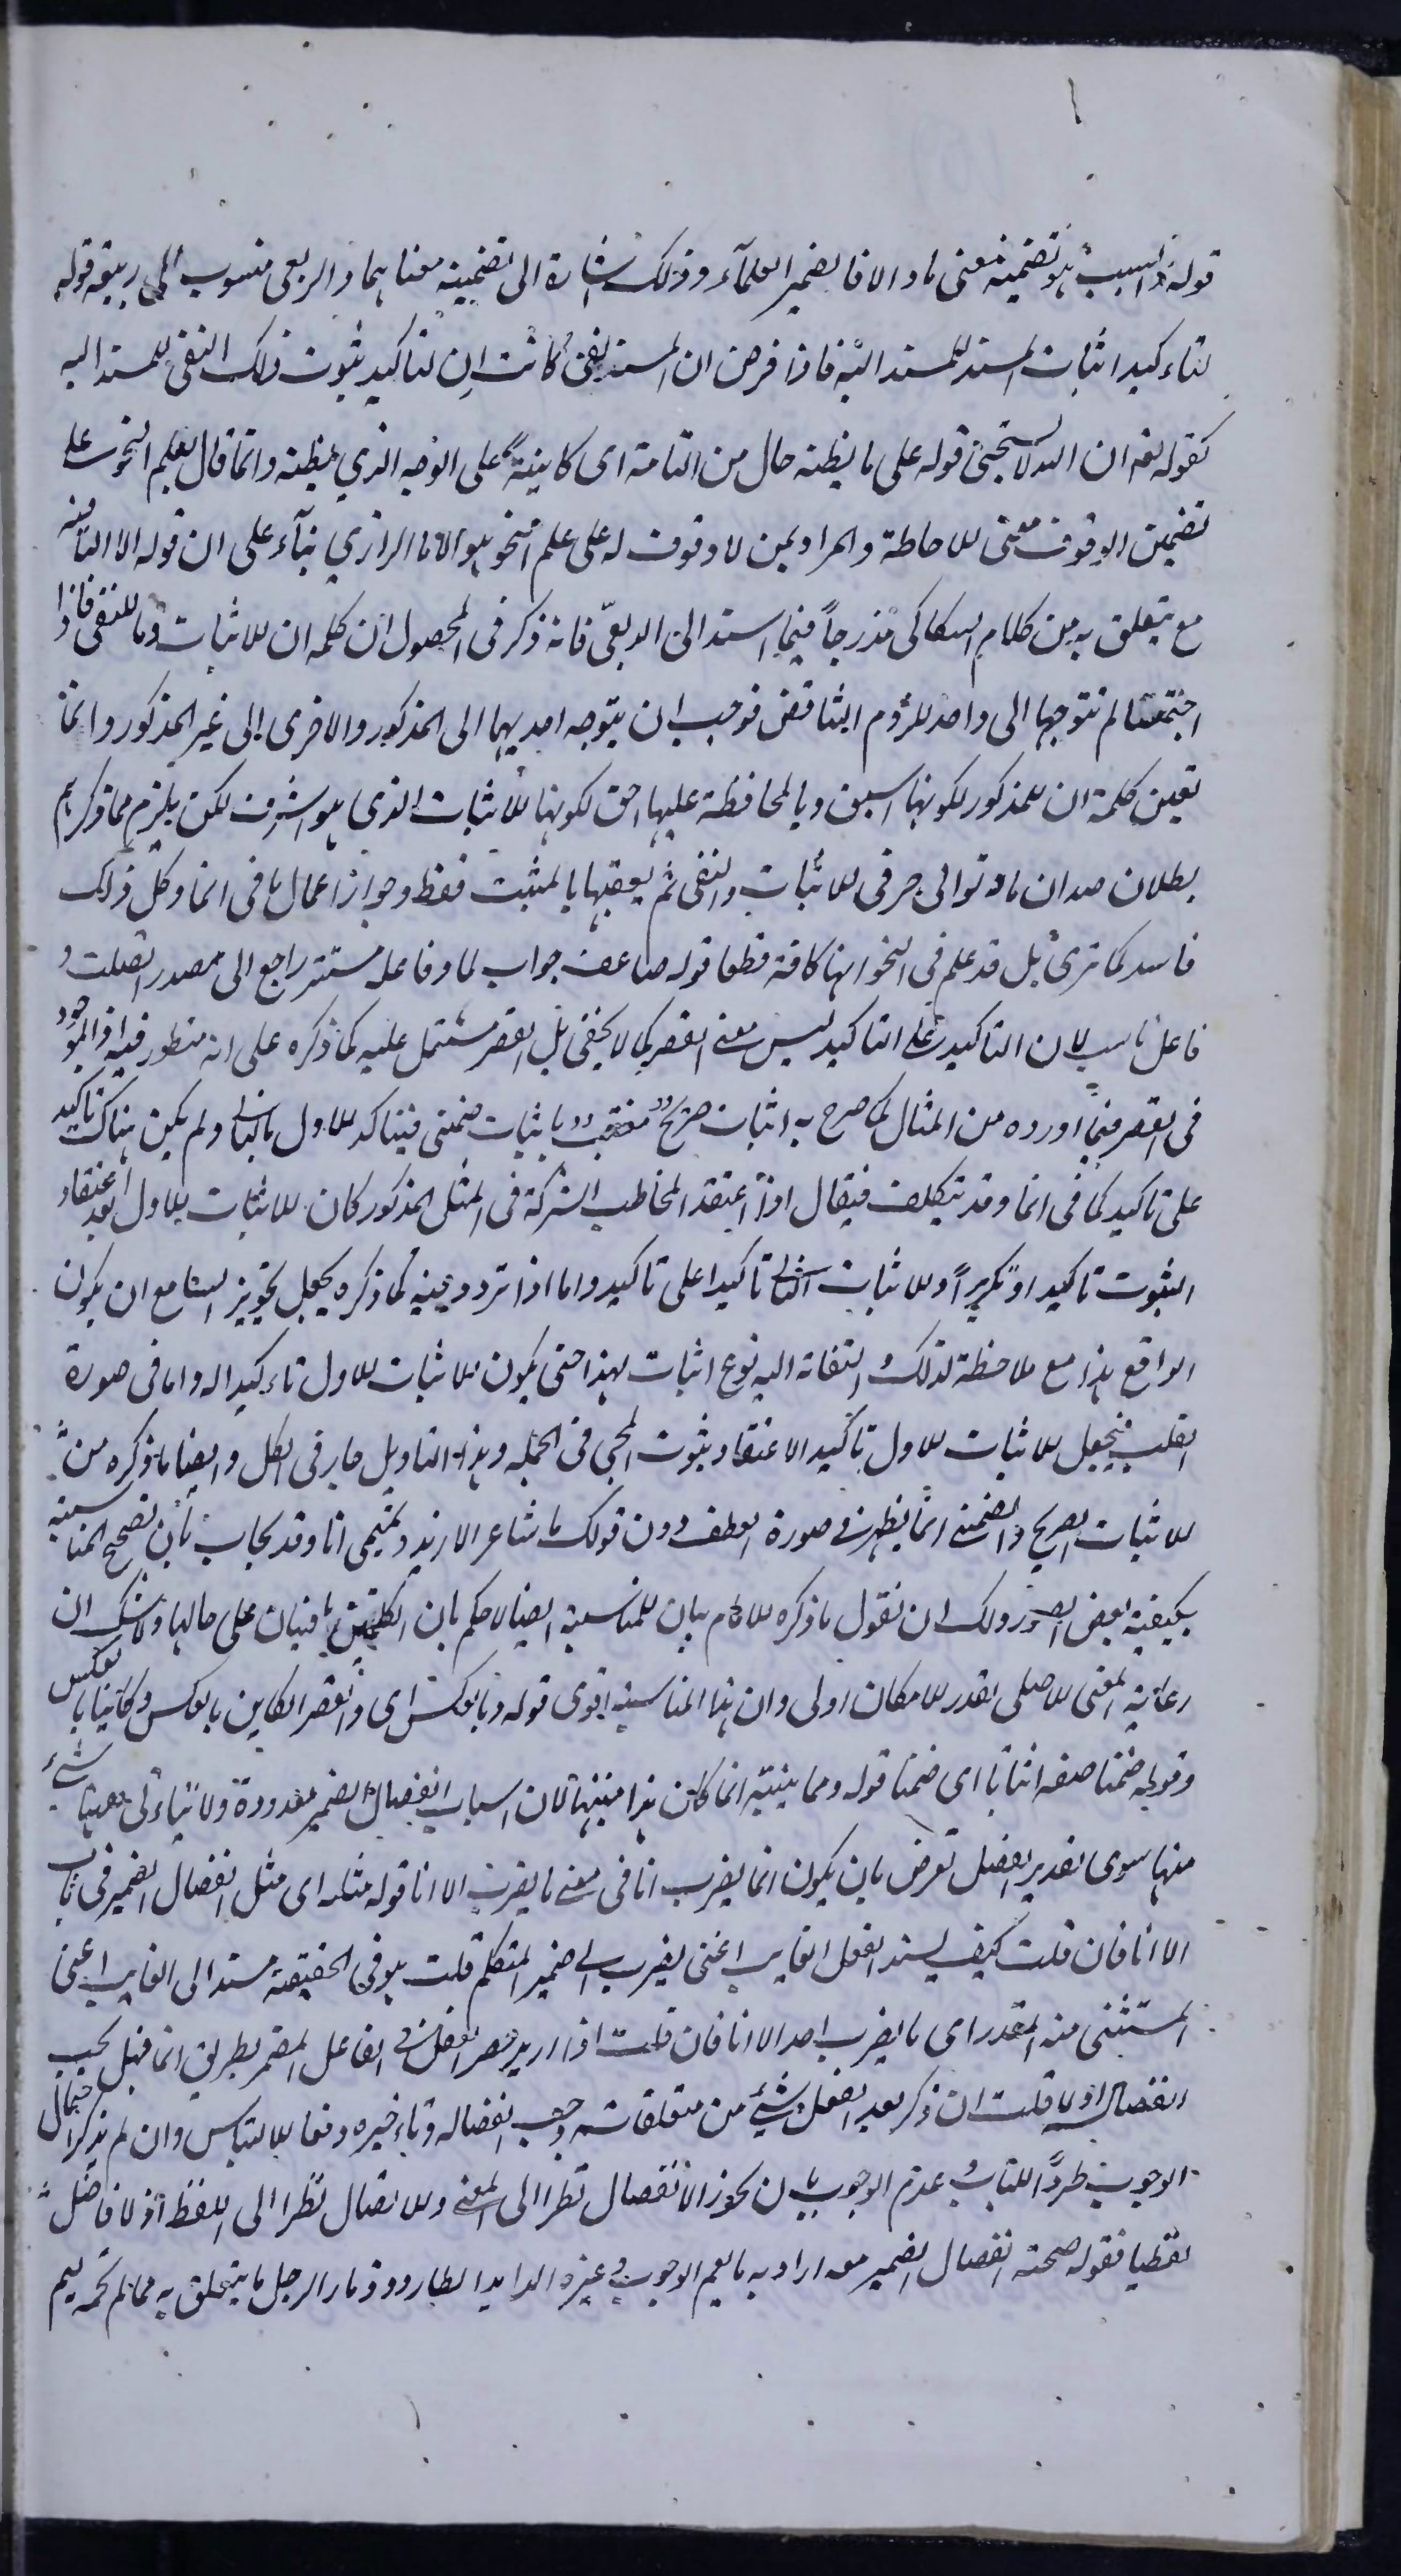 قوله والسبب هو تضمينه معنى ما والا فالضمير للعلماء وذلك اشارة الى تضمينه معناهما والربعي منسوب الى ربيعة قوله
لتاءكيد اثبات المسند للمسند اليه فاذا فرض ان المسند نفى كانت ان لتاكيد ثبوت ذلك النفى للمسند اليه
كقوله تعه ان الله لا يستحيى قوله على ما يظنه حال من التامة اى كاينة على الوجه الذي يظنه وانما قال بعلم النحو على
تضمين الوقوف معنى الاحاطة والمراد بمن لا وقوف له على علم النحو هو الامام الرازي بناء على ان قوله الا النافية
مع يتعلق به من كلام السكاكى مندرجا فيما اسند الى الربعى فانه ذكر فى المحصول ان كلمه ان للاثبات وما للنفى فاذا
اجتمعتا لم تتوجها الى واحد للزوم التناقض فوجب ان يتوجه احديهما الى المذكور والاخرى الى غير المذكور وانما
تعين كلمة ان للمذكور لكونها اسبق وبالمحافظة عليها احق لكونها للاثبات الذي هو اشرف لكن يلزم مما ذكرتم
بطلان صدان ما وتوالى حرفى الاثبات والنفى ثم يعقبها بالمثبت فقط وجواز اعمال ما فى انما وكل ذلك
فاسد كما ترى بل قد علم فى النحو انها كافة قطعا قوله ضاعف جواب لما وفاعله مستتر راجع الى مصدر اتصلت و
فاعل ناسب لان التاكيد على التاكيد ليس معنى القصر كما لا يخفى بل القصر مشتمل عليه كما ذكره على انه منظور فيه اذ الموجود
فى القصر فيما اورده من المثال كما صرح به اثبات صريح متعقب باثبات ضمنى فيتاكد الاول بالثانى ولم يكن هناك تاكيد
على تاكيد كما فى انما وقد يتكلف فيقال اذا اعتقد المخاطب الشركة فى المثل المذكور كان الاثبات الاول بعد اعتقاد
الثبوت تاكيدا وتكريرا والاثبات الثانى تاكيدا على تاكيد واما اذا تردد فيه كما ذكره يجعل تجويز السامع ان يكون
الواقع هذا مع ملاحظة لذلك والتفاته اليه نوع اثبات لهذا حتى يكون الاثبات الاول تاءكيدا له واما فى صورة
القلب فيجعل الاثبات الاول تاكيدا لاعتقاد ثبوت المجى فى الجمله وهذا التاويل جار فى الكل وايضا ما ذكره من
الاثبات الصريح والضمنى انما يظهر فى صورة العطف دون قولك ما شاعر الا زيد وتميمى انا وقد يجاب بان تصحيح المناسبة
يكفيه بعض الصور ولك ان تقول ما ذكره الامام بيان للمناسبة ايضا لا حكم بان الكلمتين باقيتان على حالها ولا شك ان
رعاية المعنى الاصلى بقدر الامكان اولى وان هذا المناسبة اقوى قوله وبالعكس اى والقصر الكاين بالعكس او كاينا بالعكس
وقوله ضمنا صفه اثباتا اى ضمنا قوله ومما ينبه انما كان هذا منبها لان اسباب انفصال الضمير معدودة ولا يتاءتى ههنا شئ
منها سوى تقدير الفصل لغرض بان يكون انما يضرب انا فى معنى ما يضرب الا انا قوله مثله اى مثل انفصال الضمير فى باب
الا انا فان قلت كيف يسند الفعل الغايب اعنى يضرب الى ضمير المتكلم قلت هو فى الحقيقة مسند الى الغايب اعنى
المستثنى منه المقدر اى ما يضرب احد الا انا فان قلت اذا اريد قصر الفعل فى الفاعل المضمر بطريق انما فهل يجب
انفصاله او لا قلت ان ذكر بعد الفعل شئ من متعلقاته وجب انفصاله وتاءخيره دفعا للالتباس وان لم يذكر احتمال
الوجوب طردا للباب وعدم الوجوب بان يجوز الانفصال نظرا الى المعنى والاتصال نظرا الى اللفظ اذ لا فاصل
لفظيا فقوله صحة انفصال الضمير معه اراد به ما يعم الوجوب وغيره الذايد الطارد وذمار الرجل ما يتعلق به مما لم يحمه ليم